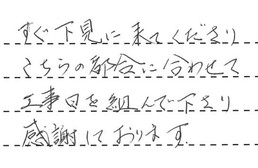 すぐ下見に来てくださり
こちらの都合に合わせて
工事日を組んで下さり
感謝しております。